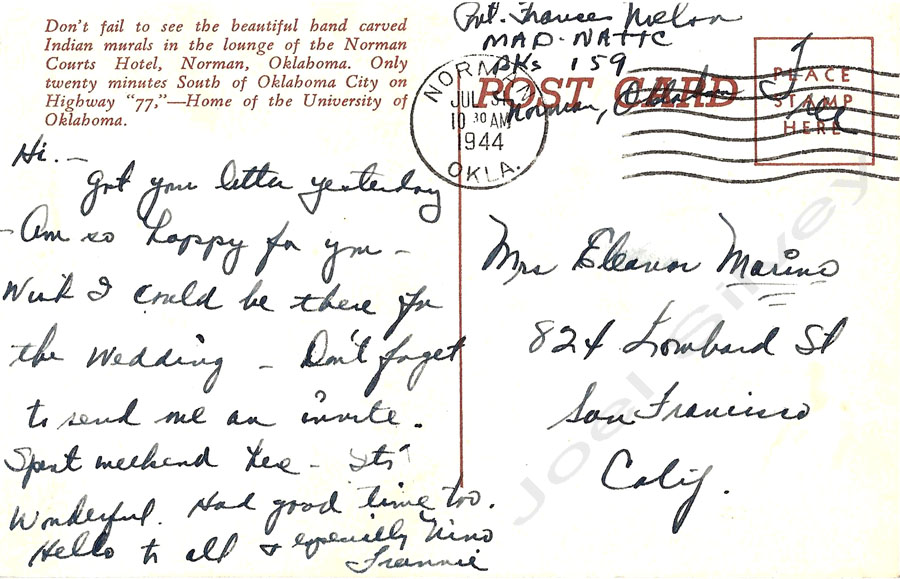 Don't fail to see the beautiful hand carved
Indian murals in the lounge of the Norman
Courts Hotel, Norman, Oklahoma. Only
twenty minutes South of Oklahoma City on
Highway "77,"—Home of the University of
Oklahoma.
Pvt. Frances Nelson
MAD-NATTC
Bks 159
Norman, Oklahoma
NORMAN
JUL 31
10 30 AM
1944
OKLA.
POST CARD
PLACE
STAMP
HERE
Hi. —
Got your letter yesterday
- Am so happy for you -
Wish I could be there for
the wedding - Don't forget
to send me an invite.
Spent weekend here - Its
Wonderful. Had good time too.
Hello to all & especially "Nino
Frannie
Mrs Eleanor Marino
824 Lombard St
San Francisco
Calif.
Joel Silvey